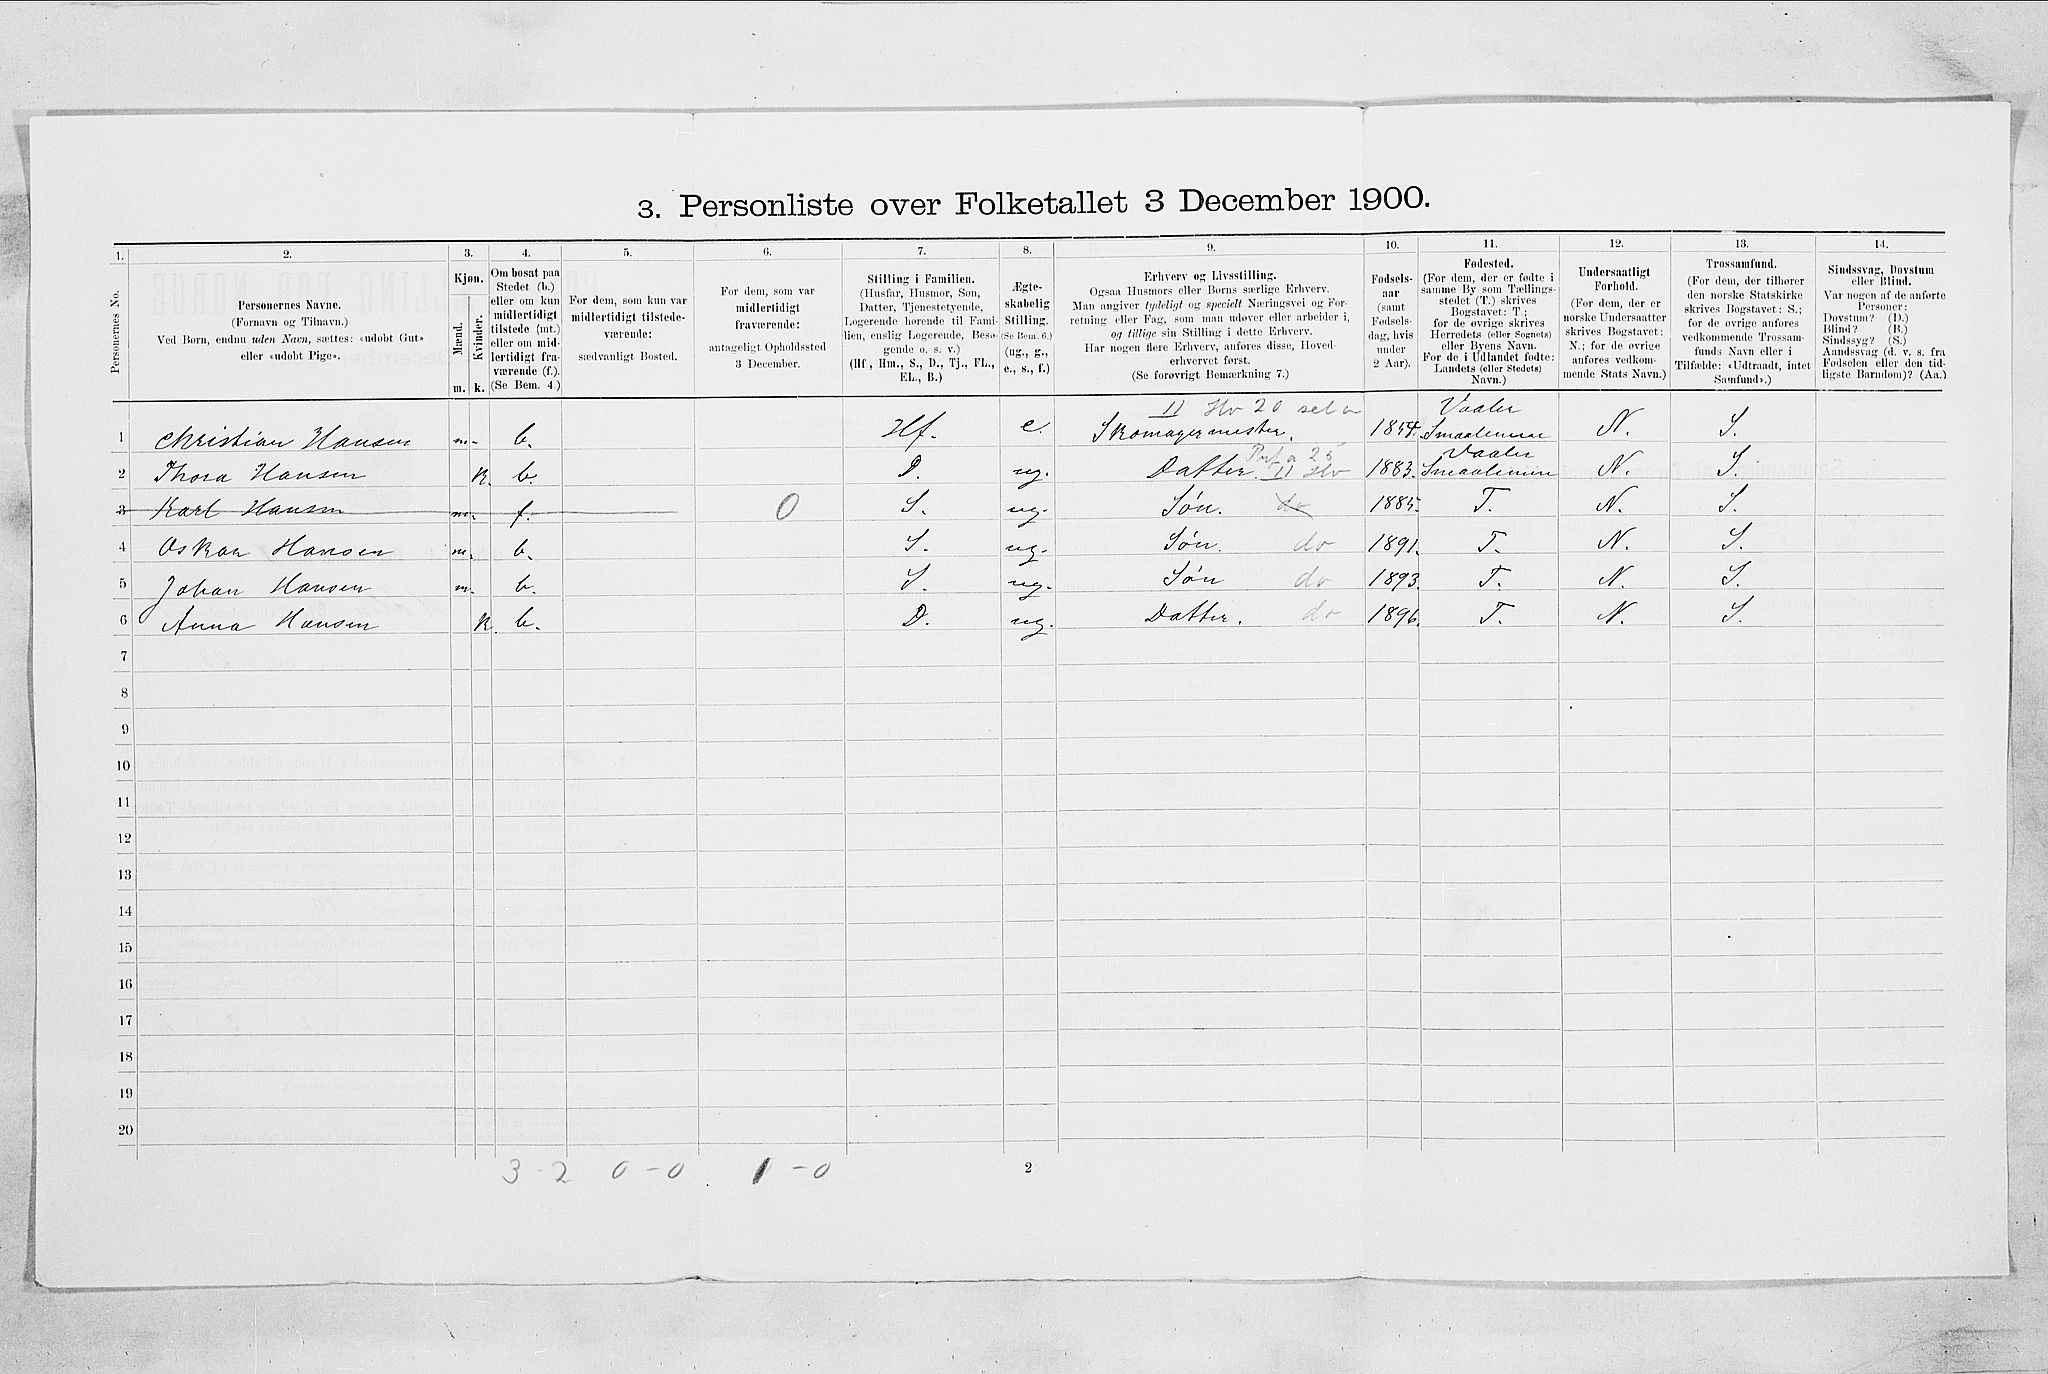 3. Personliste over Folketallet 3 December 1900.
1. 2. 3. 4. 5. 6. 7. 8. 9. 10. 11. 12. 13. 14.
Personernes No.
Personernes Navne.
(Fornavn og Tilnavn.)
Ved Børn, endnu uden Navn, sættes: «udøbt Gut»
eller «udøbt Pige».
Kjøn.
Mænd.
Kvinder.
m. k.
Om bosat paa
Stedet (b.)
eller om kun
midlertidigt
tilstede (mt.)
eller om mid-
lertidigt fra-
værende (f.).
(Se Bem. 4.)
For dem, som kun var
midlertidigt tilstede-
værende:
sædvanligt Bosted.
For dem, som var
midlertidigt
fraværende:
antageligt Opholdssted
3 December.
Stilling i Familien.
(Husfar, Husmor, Søn,
Datter, Tjenestetyende,
Logerende hørende til Fami-
lien, enslig Logerende, Besø-
gende o. s. v.)
(Hf, Hm., S., D., Tj., FL.,
EL., B.)
Ægte-
skabelig
Stilling.
(Se Bem. 6.)
(ug., g.,
e., s., f.)
Erhverv og Livsstilling.
Ogsaa Husmors eller Børns særlige Erhverv.
Man angiver tydeligt og specielt Næringsvei og For-
retning eller Fag, som man udøver eller arbeider i,
og tillige sin Stilling i dette Erhverv.
Har nogen flere Erhverv, anføres disse, Hoved-
erhvervet først.
(Se forøvrigt Bemærkning 7.)
Fødsels-
aar
(samt
Fødsels-
dag, hvis
under
2 Aar).
Fødested.
(For dem, der er fødte i
samme By som Tællings-
stedet (T.) skrives
Bogstavet: T.;
for de øvrige skrives
Herredets (eller Sognets)
eller Byens Navn.
For de i Udlandet fødte:
Landets (eller Stedets)
Navn.)
Undersaatligt
Forhold.
(For dem, der er
norske Undersaatter
skrives Bogstavet:
N.; for de øvrige
anføres vedkom-
mende Stats Navn.)
Trossamfund.
(For dem, der tilhører
den norske Statskirke
skrives Bogstavet: S.;
for de øvrige anføres
vedkommende Trossam-
funds Navn eller i
Tilfælde: «Udtraadt, intet
Samfund».)
Sindssvag, Døvstum
eller Blind.
Var nogen af de anførte
Personer:
Døvstum? (D.)
Blind? (B.)
Sindssyg? (S.)
Aandssvag (d. v. s. fra
Fødselen eller den tid-
ligste Barndom)? (Aa.)
II Hv 20 Vaaler
1 Christian Hansen m. b. Hf. e. Skomagermester. 1854. Smaalenene N. S.
25 Vaaler
2 Thora Hansen k. b. D. ug. Datter. II Hv 1883. Smaalenene N. S.
3 Karl Hansen m. f. 0 S. ug. Søn. do 1885. T. N. S.
4 Oskar Hansen m. b. S. ug. Søn. do 1891. T. N. S.
5 Johan Hansen m. b. S. ug. Søn do 1893. T. N. S.
6 Anna Hansen k. b. D. ug. Datter. do 1896. T. N. S.
7
8
9
10
11
12
13
14
15
16
17
18
19
20
3-2 0-0 1-0 2